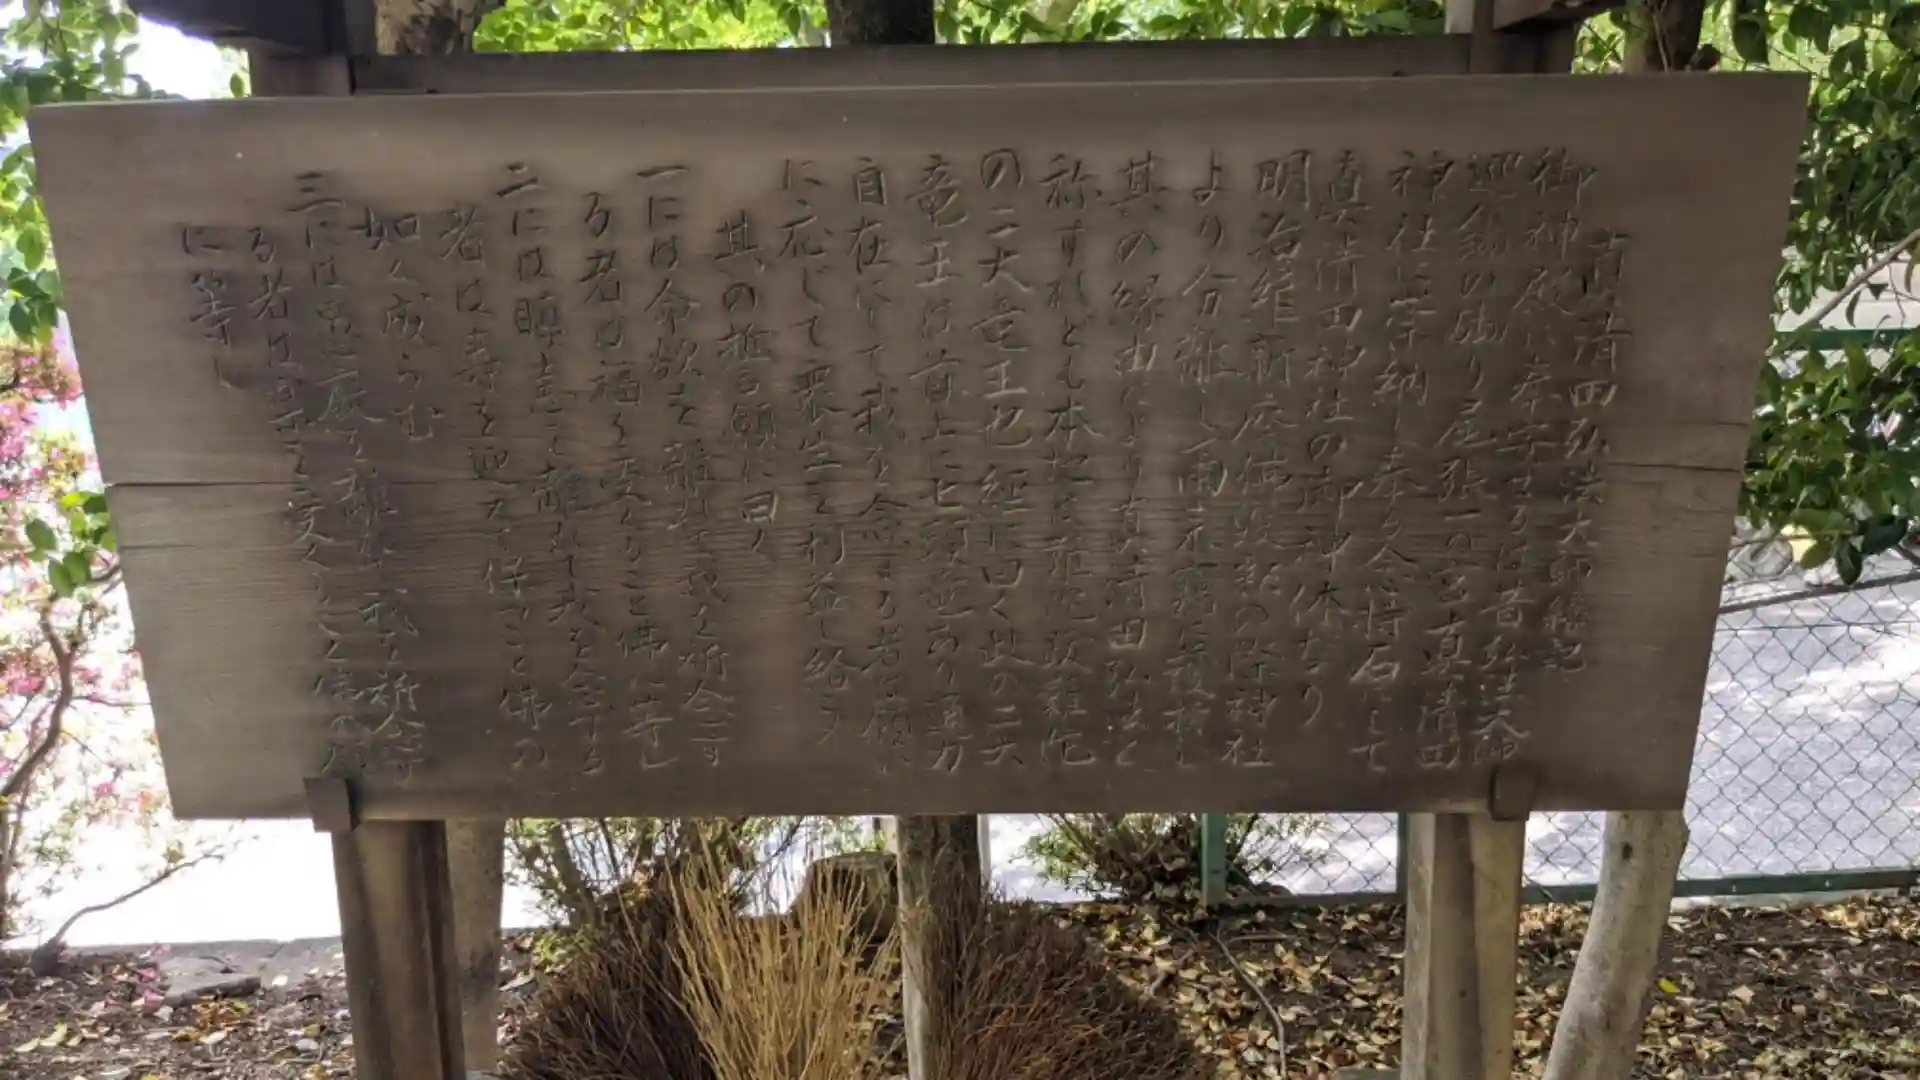 真清田弘法大師縁記
御神殿に奉安せるは昔弘法大師
巡錫の砌り尾張一の宮真清田
神社に奉納し奉る念持石にして
真清田神社の御神体なり
明治維新廃佛毀釈の際神社
より分離し
其の縁由により真清田弘法と
称すれども本地は難陀跋難陀
の二大竜王也経に曰く此の二大
竜王は首上に七頭竜あり通力
自在にして我を念ずる者に願
に応じて衆生を利益し給う
其の推言頌に曰く
一には命欲を離れて我を祈念す
る者は福を受くること佛に等し
二には瞋恚を離れて我を念ずる
者は寿を迎えて保つこと佛の
如く成らむ
三には愚痴を離れ我を祈念す
る者は智を受くること佛の
に等し